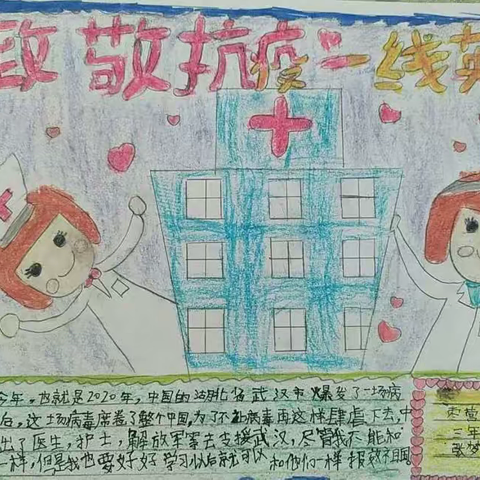 致敬抗疫一线英
今年,也就是2020年,中国的湖北省武汉市爆发了一场病
后,这场病毒席卷了整个中国,为了不让病毒再这样肆虐下去,中
出了医生,护士,解放军等去支援武汉,尽管我不能和
一样,但是我也要好好学习以后就可以和他们一样报效祖国
三年